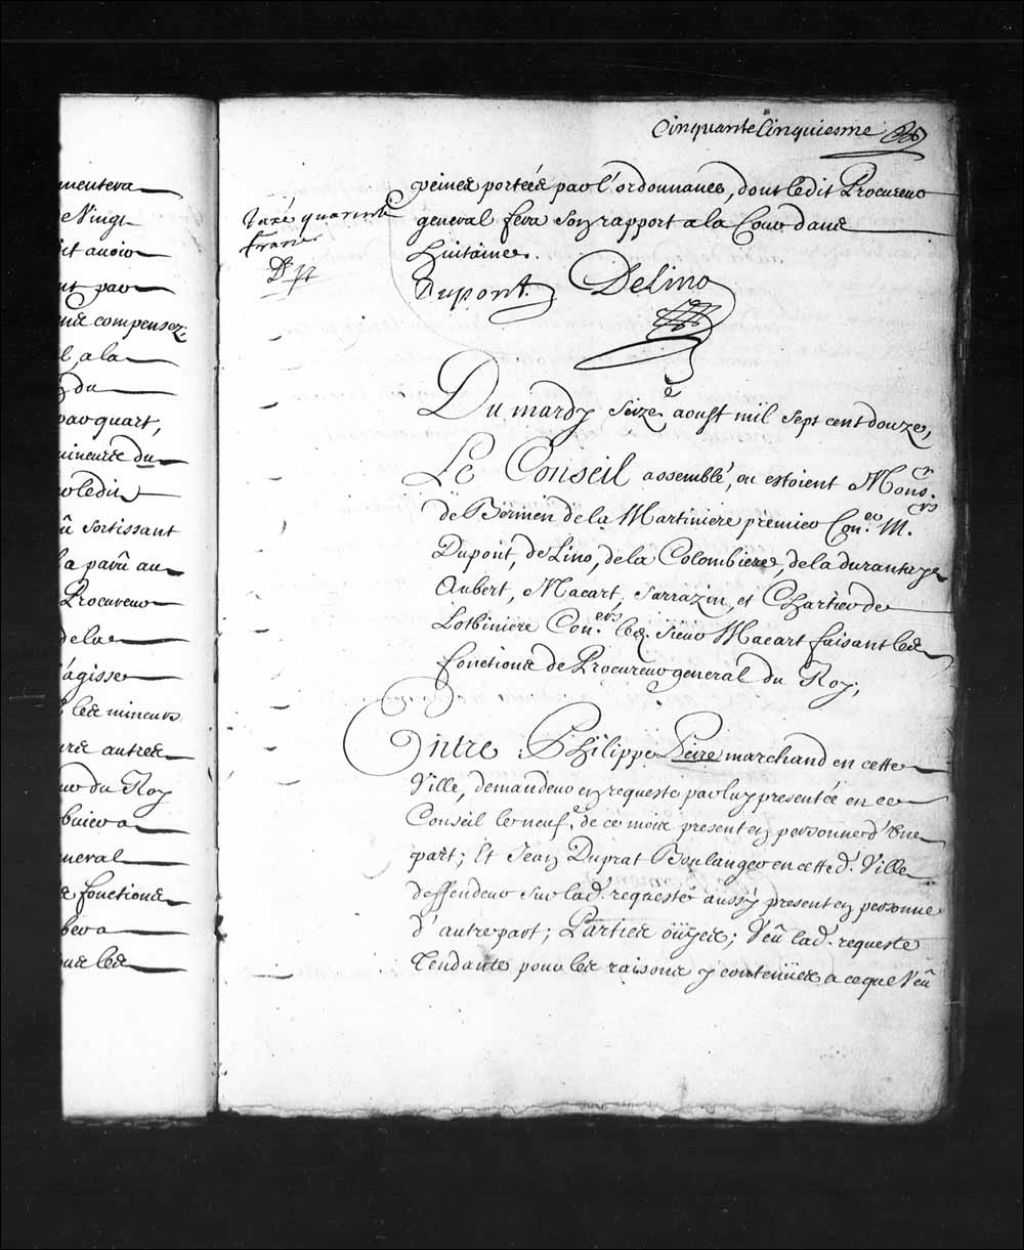 menteva
e Vingt
it audio
nt par
ens compensez
l, a la
du
par quart,
mineurs du
ledit
û sortissant
la parû au
Procureur
dela
s'agisse
les mineurs
autres
du Roy
a
neral
e fonctions
bera
les
Cinquante Cinquiesme
peines portées par l'ordonnance, dont ledit Procureur
general fera son rapport a la Cour dans
huitaine.
Taxé quarante
francs
Dupont. Delino
Du mardy seize.e aoust mil sept cent douze,
Le Conseil assemblé, ou estoient Mons.r
de Bermen de la Martiniere premier Con.er M.rs
Dupont, de Lino, de la Colombiere, de la durantaye
Aubert, Macart, Sarrazin, et Chartier de
Lotbiniere Con.ers led. sieur Macart faisant les
fonctions de Procureur general du Roy;
Entre Philippe Peire marchand en cette
Ville, demandeur en requeste par luy presentée en ce
Conseil le neuf.e de ce mois present en personne d'une
part; Et Jean Duprat Boulanger en cetted. Ville
deffendeur sur lad. requeste aussy present en personne
d'autre part; Parties oüyes; Veû lad. requeste
Tendante pour les raisons y contenües a ce que Veû